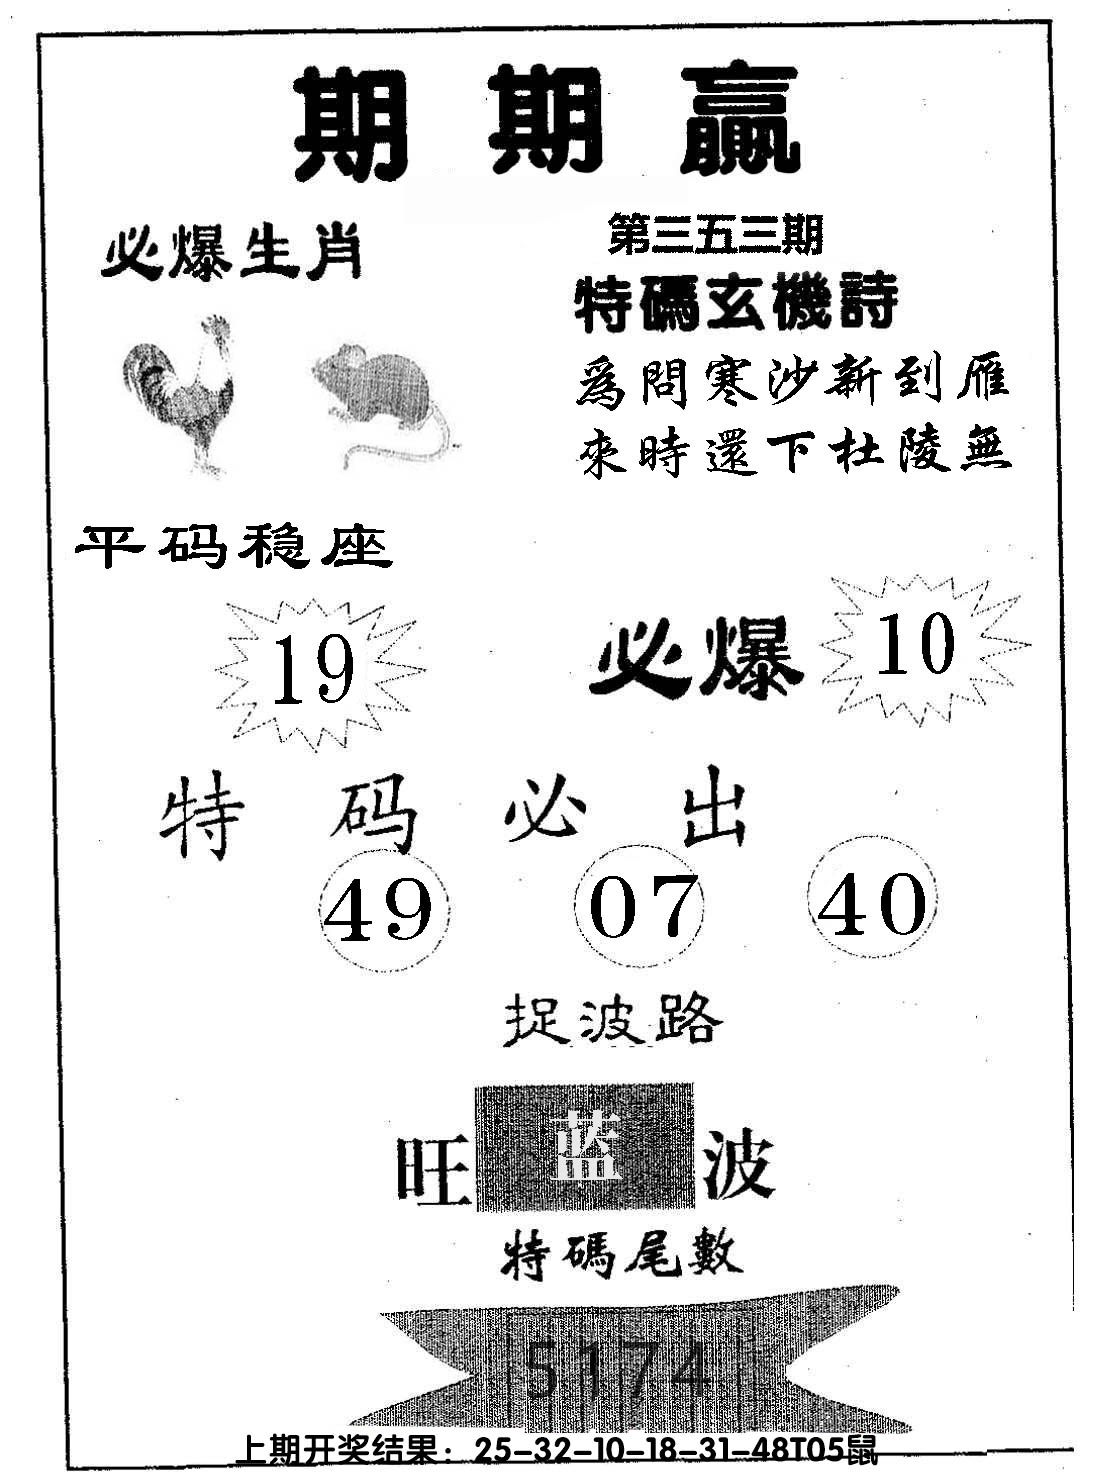 期期赢
必爆生肖
第三五三期
特碼玄機詩
爲問寒沙新到雁
來時還下杜陵無
平码稳座
19
必爆 10
特码必出
49 07 40
捉波路
旺蓝波
特碼尾數
5174
上期开奖结果：25-32-10-18-31-48T05鼠